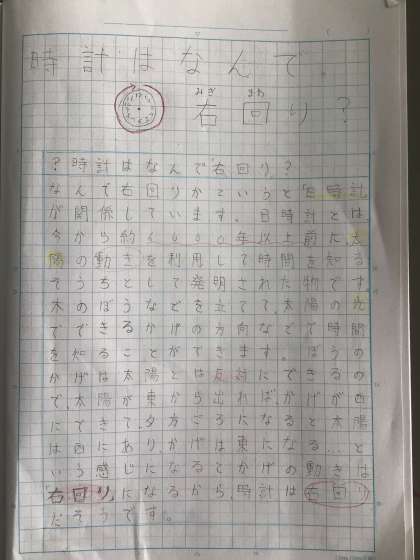 時計はなんで
右回り?
みぎ まわ
?時計はなんで右回り?
なんで右回りかというと日時計
が関係しています。日時計とは、
今から約6000年以上前に、太
陽の動きを利用して時間を知る
そうちとして発明された物です。
木のぼうなどを立てて、太陽の光
でできるかげの方向などで時間
を知ることができます。ぼうの
かげは太陽とは反対にできるの
で、太陽が東から出れば、かげが西
にできて、夕方ごろになると太陽
は西にあり、かげは東になる…と
いう感じになるとかげの動きは
右回りになるから、時計は右回り
だそうです。